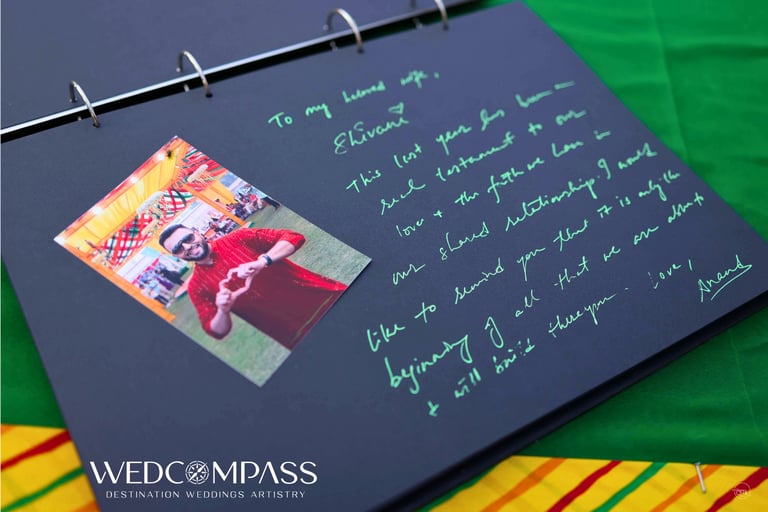 To my beloved wife,
Shivani
This last year has been a
real testament to our
love & the faith we have in
our shared relationship. I would
like to remind you that it is only the
beginning of all that we are about to
& will build
Love,
Anand
WEDCOMPASS
DESTINATION WEDDINGS ARTISTRY